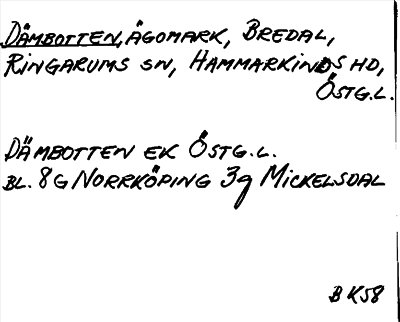 DÄMBOTTEN, ÄGOMARK, BREDAL,
RINGARUMS SN, HAMMARKINDS HD,
ÖSTG.L.
DÄMBOTTEN EK ÖSTG.L.
BL. 8G NORRKÖPING 3g MICKELSDAL
BK58